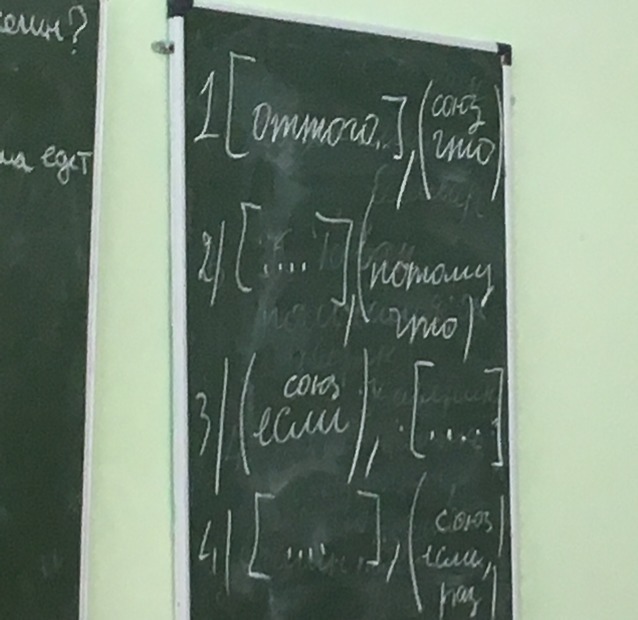 жешн?
ма едет
1 [оттого...], (союз
что)
2) [....], (потому
что)
3) (союз
если), [.....]
4) [.....], (союз
если,
раз)